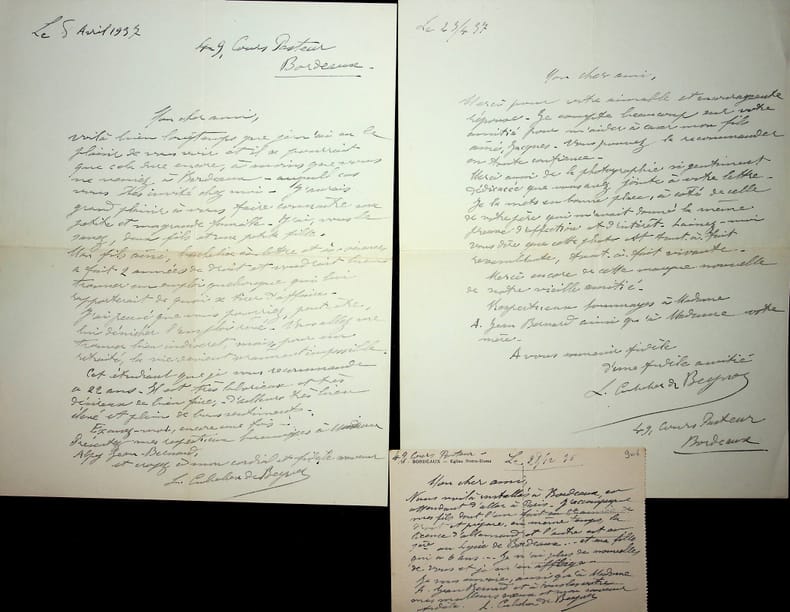 Le 5 Avril 1937
49, Cours Pasteur
Bordeaux.
Mon cher ami,
voilà bien longtemps que je n'ai eu le
plaisir de vous voir et il se pourrait
que cela dure encore, à moins que vous
ne veniez à Bordeaux - auquel cas
vous êtes invité chez moi. J'aurais
grand plaisir à vous faire connaître ma
petite et ma grande famille. J'ai, vous le
savez, deux fils et une petite fille.
Mon fils aîné, bachelier
a fait 2 années de droit et voudrait
trouver un emploi quelconque qui lui
rapporterait de quoi se tirer d'affaire.
J'ai pensé que vous pourriez, peut-être,
lui dénicher l'emploi rêvé. Vous allez me
trouver bien indiscret mais, pour un
retraité, la vie devient vraiment impossible.
Cet étudiant que je vous recommande
a 22 ans. Il est très laborieux et très
désireux de bien faire, d'ailleurs très bien
élevé et plein de bons sentiments.
Excusez-moi, encore une fois.
Présentez mes respectueux hommages à Madame
Jean Bernard,
et croyez à mon cordial et fidèle souvenir
Le 23/4 37
Mon cher ami,
Merci pour votre aimable et encourageante
réponse. Je compte beaucoup sur votre
amitié pour m'aider à caser mon fils
aîné, Jacques. Vous pouvez le recommander
en toute confiance.
Merci aussi de la photographie si gentiment
dédicacée que vous avez jointe à votre lettre.
Je la mets en bonne place, à côté de celle
de votre père qui m'avait donné la même
preuve d'affection et d'intérêt. Laissez-moi
vous dire que cette photo est tout à fait
ressemblante, tout à fait vivante.
Merci encore de cette marque nouvelle
de notre vieille amitié.
Respectueux hommages à Madame
A. Jean Bernard ainsi qu'à Madame votre
mère.
A vous souvenir fidèle
d'une fidèle amitié
49, Cours Pasteur
Bordeaux
49 Cours Pasteur -
BORDEAUX - Église Notre-Dame
Mon cher ami,
Nous voilà installés à Bordeaux, en
attendant d'aller à Paris. J'accompagne
mes fils dont l'un fait sa
droit et prépare, en même temps, la
licence d'allemand et l'autre est en
au lycée de Bordeaux... et ma fille
qui a 6 ans... Je n'ai plus de nouvelles
de vous et je m'en afflige.
Je vous envoie, ainsi qu'à Madame
A. Jean Bernard et à tous les vôtres
mes meilleurs vœux et mon souvenir
fidèle.